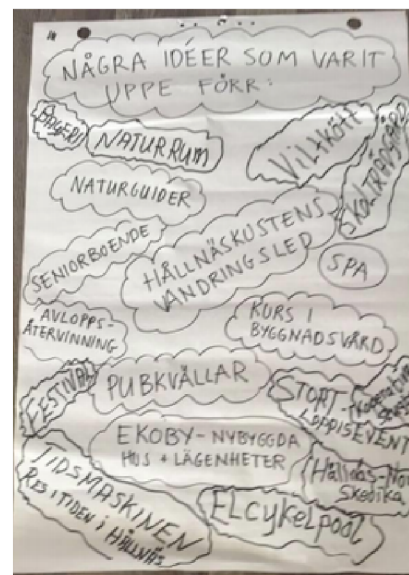 NÅGRA IDÉER SOM VARIT
UPPE FÖRR:
BAGERI
NATURRUM
VILTKÖTT
SKOLTRÄDGÅRD
NATURGUIDER
SENIORBOENDE
HÅLLNÄSKUSTENS
VANDRINGSLED
SPA
AVLOPPS-
ÅTERVINNING
KURS I
BYGGNADSVÅRD
FESTIVAL
PUBKVÄLLAR
STORT
LOPPISEVENT
EKOBY-NYBYGGDA
HUS + LÄGENHETER
TIDSMASKINEN
RES I TIDEN I HÅLLNÄS
Skedika
ELcykelpool